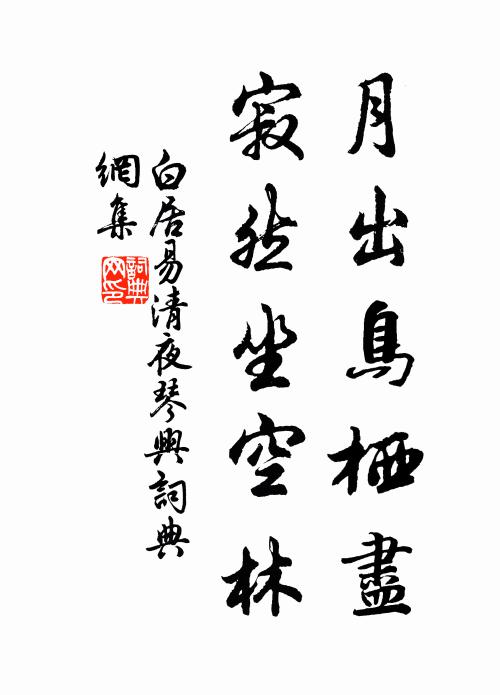 月出鳥栖盡
寂然坐空林
白居易清夜琴興詞典
網集
詞典
网印